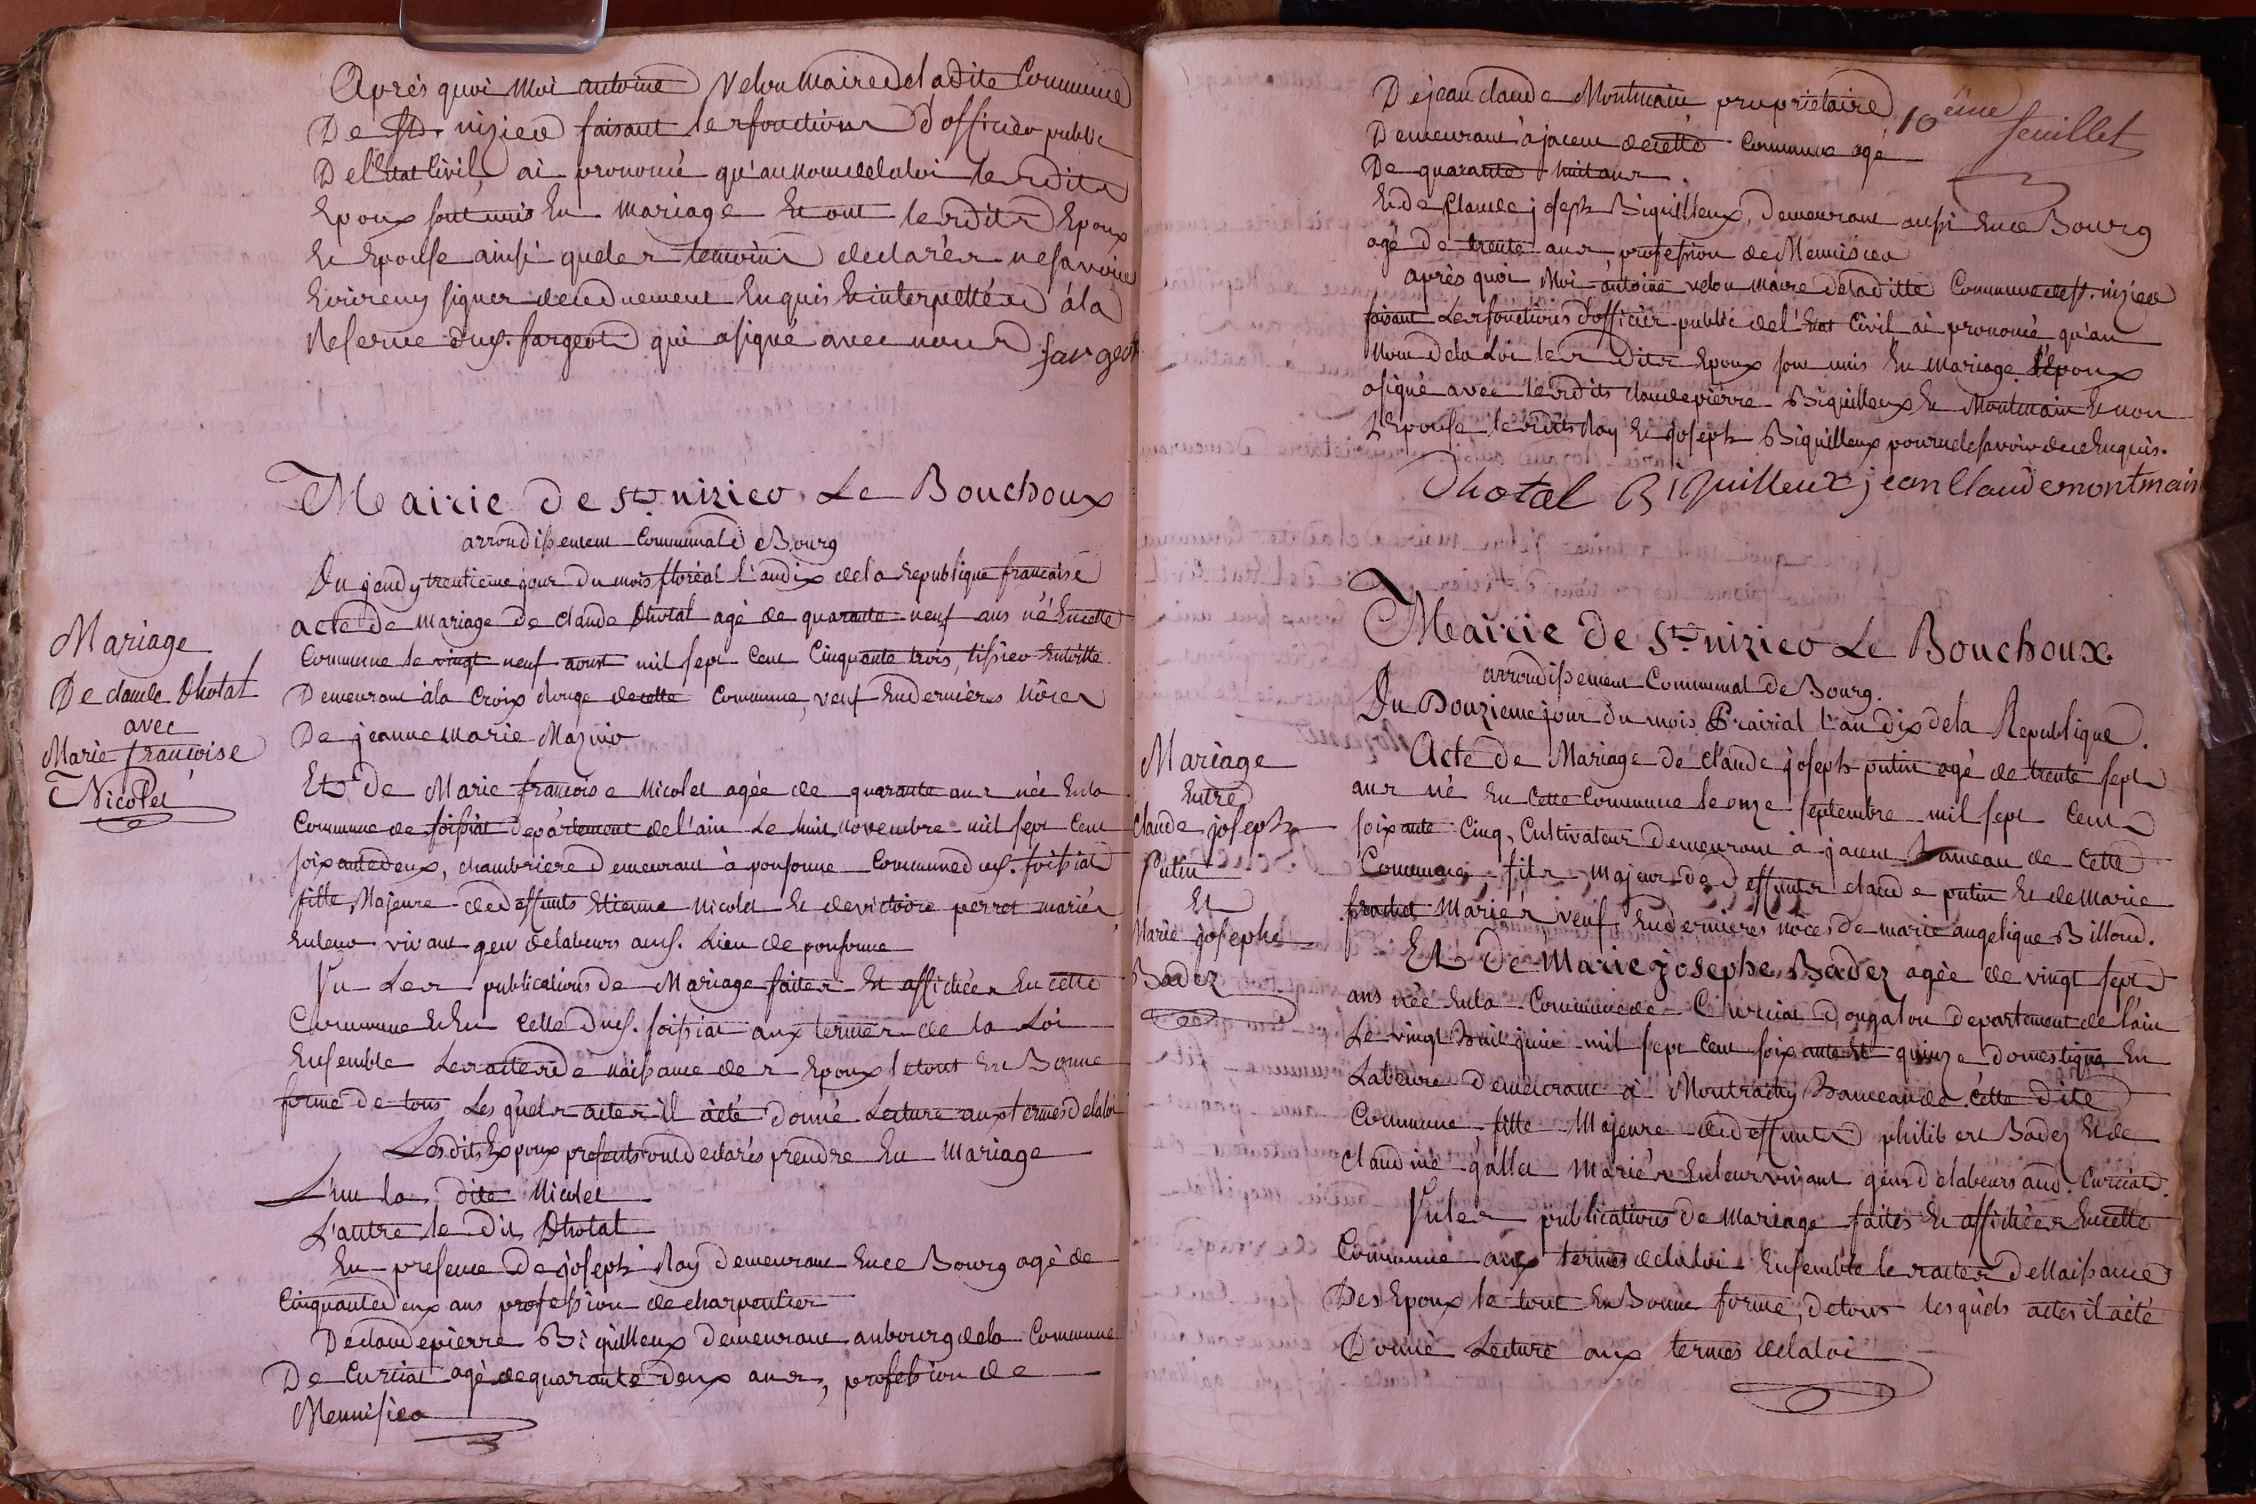 Après quoi Moi antoine Velon Maire de ladite Commune
De St. nizier faisant les fonctions d'officier public
De l'Etat Civil, ai prononcé qu'au nom de la loi les dits
Epoux sont unis En Mariage Et ont les dits Epoux
Et Epouse ainsi que les temoins declarés ne savoir
Ecrire ny signer de ce duement Enquis Et interpellées à la
Reserve duf. fargeot qui a signé avec nous
fargeot
Mairie De St. nizier Le Bouchoux
arrondissement Communal de Bourg
Du jeudy trentieme jour du mois floréal l'an dix de la republique francaise
acte de Mariage De Claude Dhotal agé de quarante neuf ans né En cette
Commune le vingt neuf aoust mil sept Cent Cinquante trois, tissier En toille
Demeurant à la Croix rouge de cette Commune, veuf En dernières Nôces
De jeanne Marie Mazuir
Mariage
De claude Dhotal
avec
Marie francoise
Nicolet
Et De Marie francoise Nicolet agée de quarante ans née En la
Commune de foissiat departement de l'ain Le huit novembre mil sept Cent
soixante deux, chambriere Demeurant à ponsonne Commune duf. foissiat
fille Majeure de deffunts Etienne Nicolet Et de victoire perret mariés
En leur vivant gens de labeurs auf. Lieu de ponsonne
Vu Les publications de Mariage faites Et affichées En cette
Commune Et En Celle duf. foissiat aux termes de la Loi
Ensemble Les actes de Naissance des Epoux le tout En Bonne
forme De tous Les quels actes il a été donné Lecture aux termes de la loi
Les dits Epoux presents ont declarés prendre En Mariage
L'un la dite Nicolet
L'autre le dit Dhotal
En presence De joseph Ray demeurant En ce Bourg agé de
Cinquante deux ans profession de charpentier
De claude pierre Biquilleux demeurant au bourg de la Commune
De Curciat agé de quarante deux ans, profession de
Menuisier
10eme feuillet
De jean claude Montmain proprietaire
Demeurant à jacent de cette Commune agé
De quarante huit ans.
Et de Claude joseph Biquilleux, demeurant aussi En ce Bourg
agé De trente ans profession de Menuisier
après quoi Moi antoine velon Maire de la ditte Commune de St. nizier
faisant Les fonctions d'officier public de l'Etat Civil ai prononcé qu'au
Nom de la Loi les dits Epoux sont unis En Mariage l'Epoux
a signé avec les dits claude pierre Biquilleux Et Montmain Et non
L'Epouse les dits Ray Et joseph Biquilleux pour ne le savoir de ce Enquis.
Dhotal Biquilleux jean Claude montmain
Mairie De St. nizier Le Bouchoux.
arrondissement Communal De Bourg.
Du Douzieme jour du mois Prairial l'an dix de la Republique.
Mariage
Entre
Claude joseph
Putin
Et
Marie josephe
Badez
Acte De Mariage de Claude joseph putin agé de trente sept
ans né En Cette Commune le onze septembre mil sept Cent
soixante Cinq, Cultivateur demeurant à jacent hameau de Cette
Commune, fils majeur de Deffunts claude putin Et de Marie
frachet Mariés, veuf En dernieres nôces de marie angelique Billoud.
Et De Marie josephe Badez agée de vingt sept
ans née En la Commune de Curciat dongalon departement de l'ain
Le vingt huit juin mil sept Cent soixante Et quinze domestique En
Labeure Demeurant à Montrachy hameau de cette dite
Commune fille Majeure de deffunts philibert Badez Et de
Claudine gallet Mariés En leur vivant gens de labeurs aud. Curciat.
Vu les publications de Mariage faites Et affichées En cette
Commune aux termes de la loi Ensemble les actes de Naissance
Des Epoux le tout En Bonne forme, de tous lesquels actes il a été
Donné Lecture aux termes de la loi